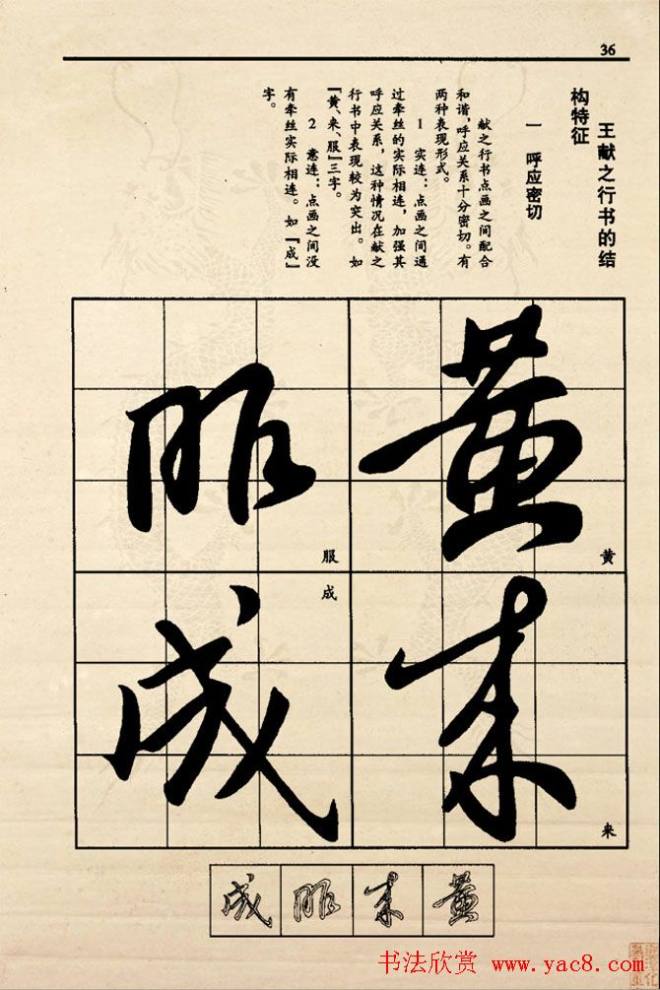 36
王献之行书的结
构特征
一 呼应密切
献之行书点画之间配合
和谐，呼应关系十分密切。有
两种表现形式。
1 实连：点画之间通
过牵丝的实际相连，加强其
呼应关系，这种情况在献之
行书中表现较为突出。如
『黄、来、服』三字。
2 意连：点画之间没
有牵丝实际相连。如『成』
字。
黄
黄
来
来
服
服
成
成
成服来黄
书法欣赏 www.yac8.com